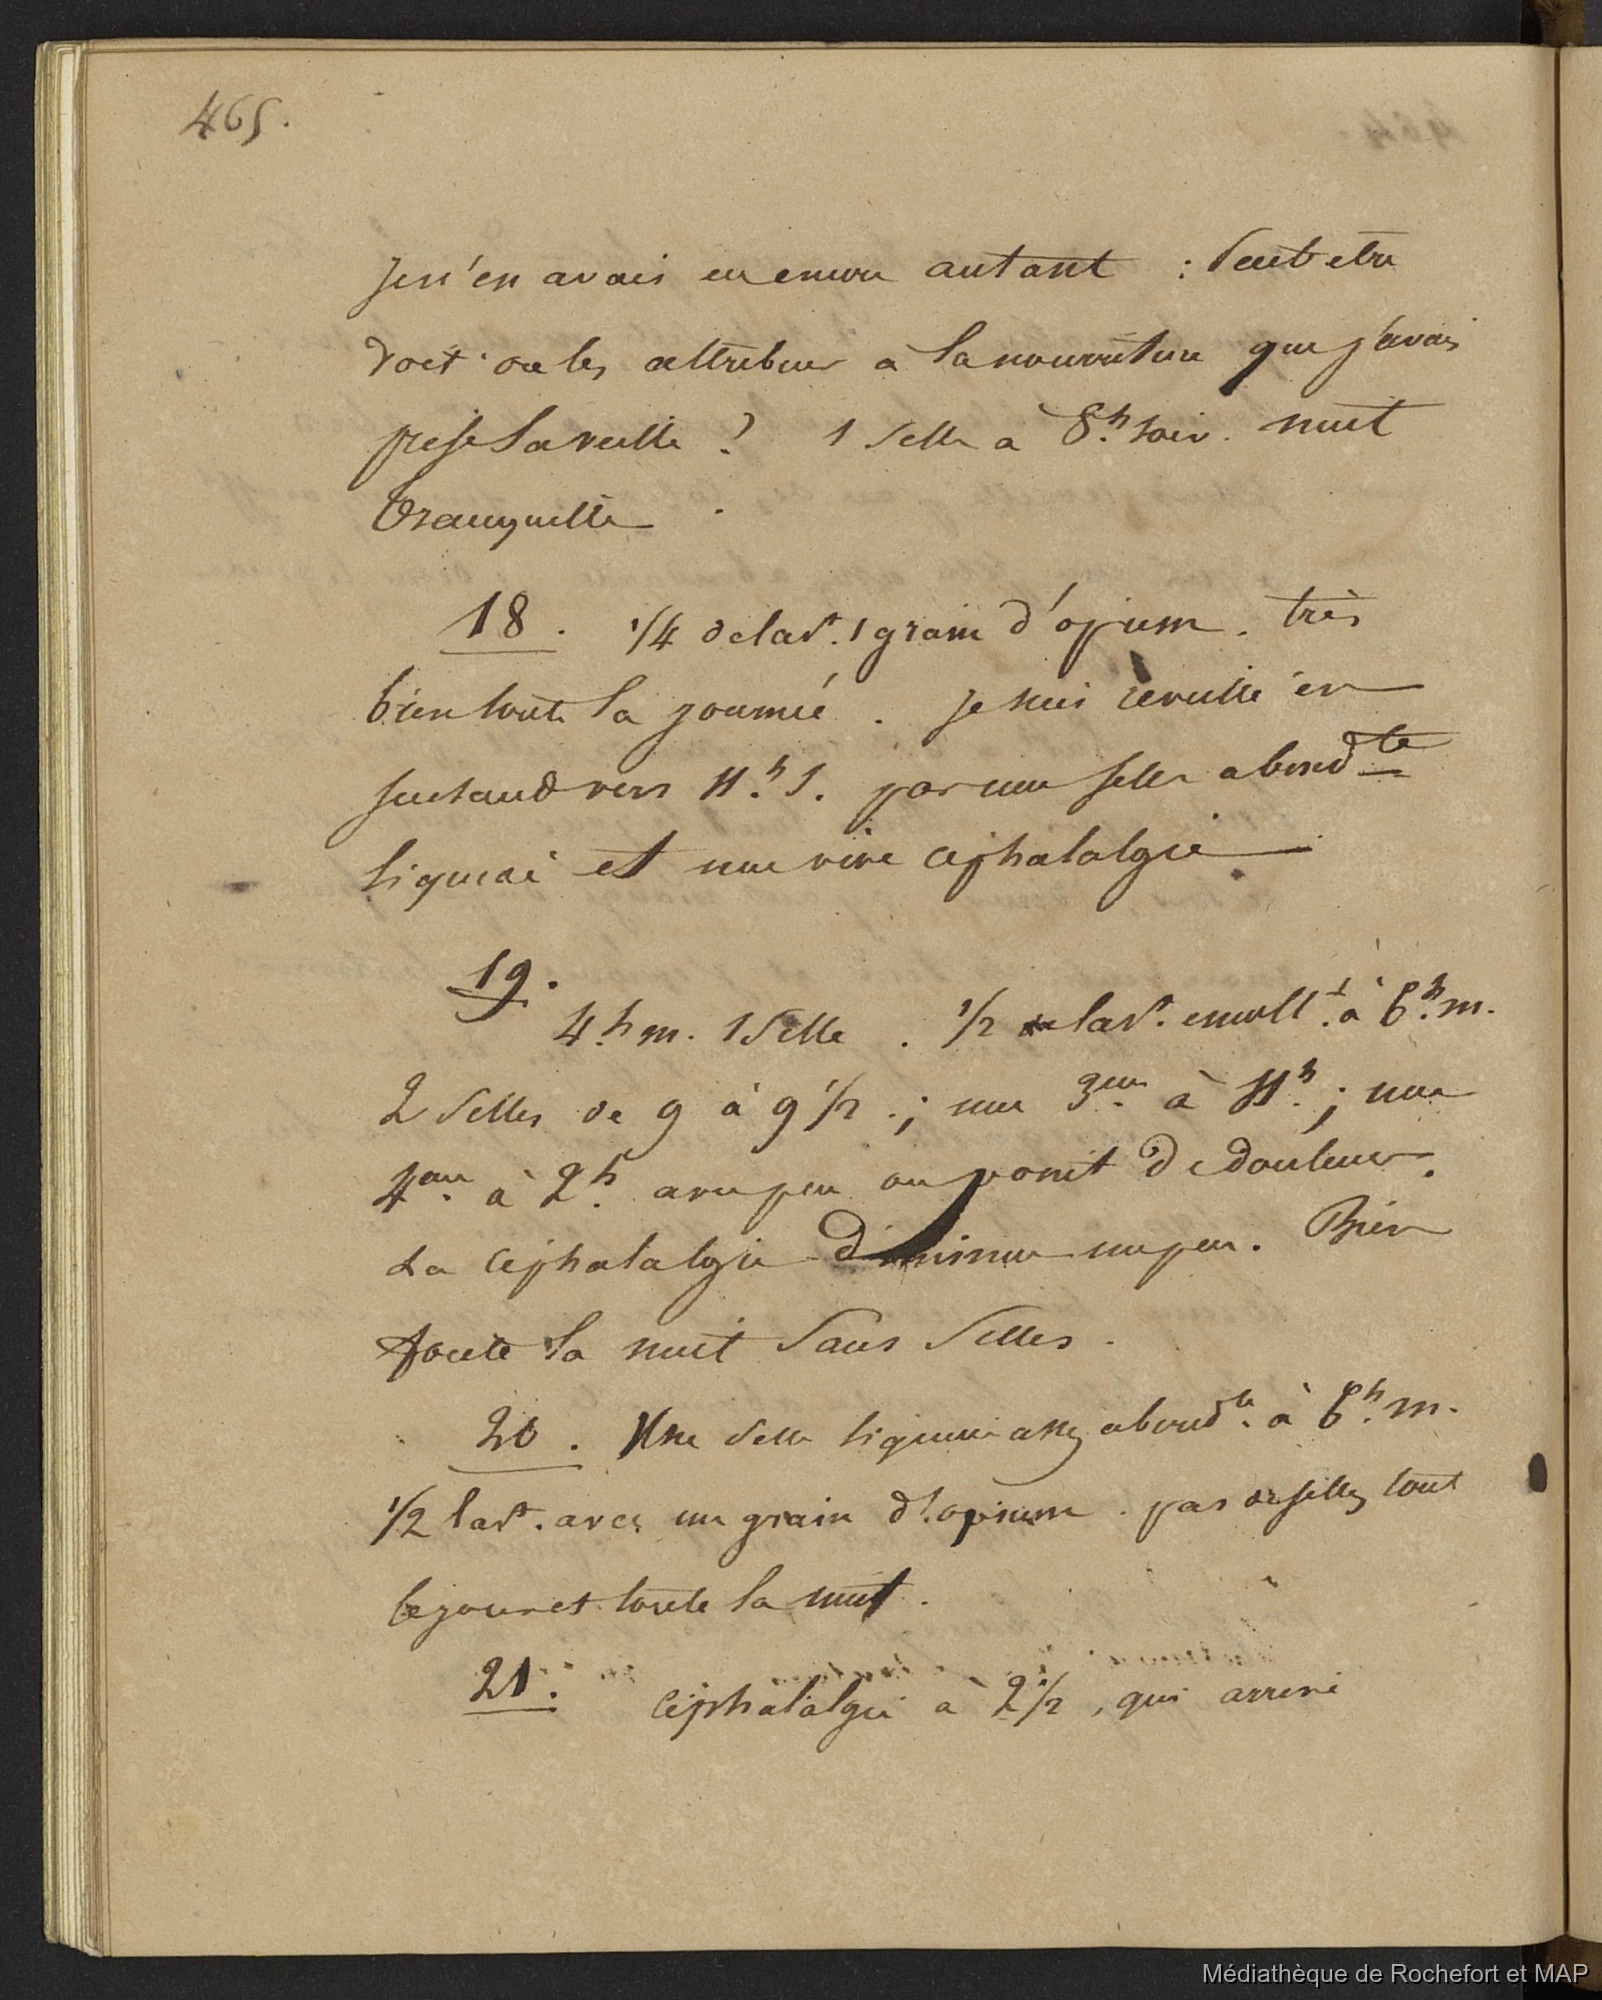 465.
Je n'en avais eu encore autant : Peut etre
doit on les attribuer à la nourriture que j'avais
prise la veille ? 1 selle à 8.h soir. nuit
tranquille.
18. 1/4 de lavt. 1 grain d'opium. très
bien toute la journée. Je suis reveillé en
sursaud vers 11.h s. par une selle abondte
liquide et une vive céphalalgie
19.
4.h m. 1 selle. 1/2 lavt. emollt. à 6.h m.
2 selles de 9 à 9 1/2. ; une 3me à 11h. ; une
4me à 2h. avec peu ou point de douleur.
La céphalalgie diminue un peu. Bien
toute la nuit sans selles.
20. Une selle liquide assez abondte. à 6h. m.
1/2 lavt. avec un grain d'opium. pas de selles tout
le jour et toute la nuit.
21. Céphalalgie à 2 1/2, qui arrive
Médiathèque de Rochefort et MAP